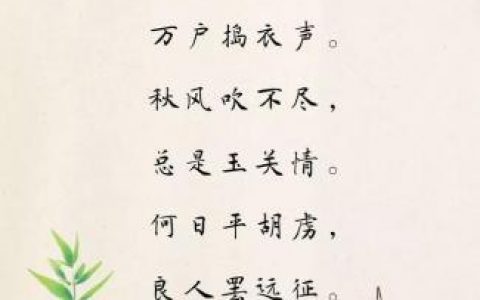 万户捣衣声。
秋风吹不尽，
总是玉关情。
何日平胡虏，
良人罢远征。